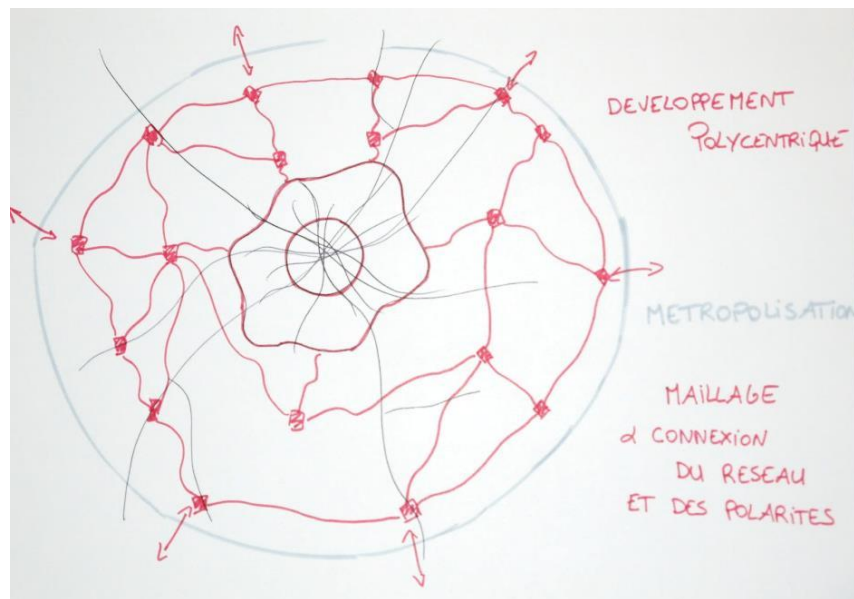 DEVELOPPEMENT
POLYCENTRIQUE
METROPOLISATION
MAILLAGE
d CONNEXION
DU RESEAU
ET DES POLARITES